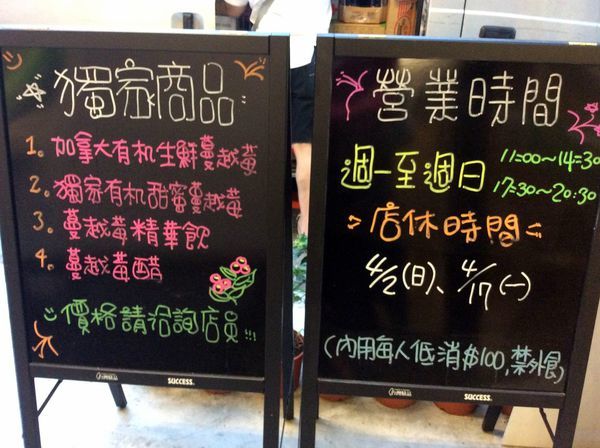 獨家商品
1。加拿大有机生鮮蔓越莓
2。獨家有机甜蜜蔓越莓
3。蔓越莓精華飲
4。蔓越莓醋
價格請洽詢店員!!!
SUCCESS.
營業時間
週一至週日
11:00~14:30
17:30~20:30
店休時間
4/2(日)、4/17(一)
(內用每人低消$100,禁外食)
SUCCESS.